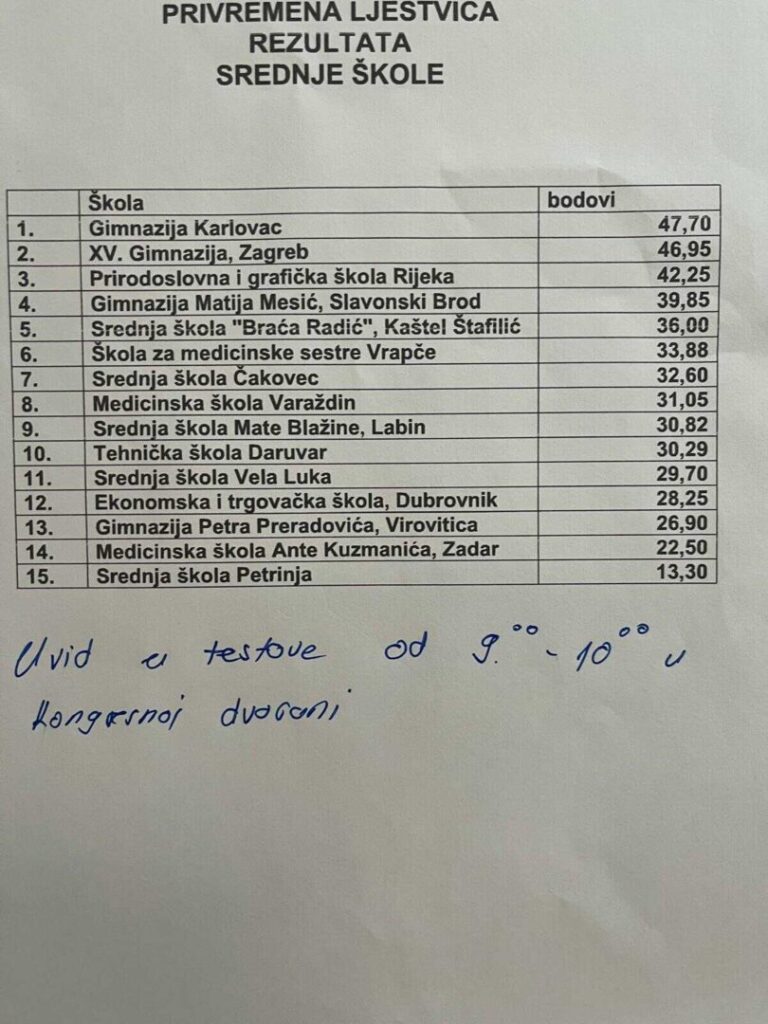 PRIVREMENA LJESTVICA
REZULTATA
SREDNJE ŠKOLE
Škola bodovi
1. Gimnazija Karlovac 47,70
2. XV. Gimnazija, Zagreb 46,95
3. Prirodoslovna i grafička škola Rijeka 42,25
4. Gimnazija Matija Mesić, Slavonski Brod 39,85
5. Srednja škola "Braća Radić", Kaštel Štafilić 36,00
6. Škola za medicinske sestre Vrapče 33,88
7. Srednja škola Čakovec 32,60
8. Medicinska škola Varaždin 31,05
9. Srednja škola Mate Blažine, Labin 30,82
10. Tehnička škola Daruvar 30,29
11. Srednja škola Vela Luka 29,70
12. Ekonomska i trgovačka škola, Dubrovnik 28,25
13. Gimnazija Petra Preradovića, Virovitica 26,90
14. Medicinska škola Ante Kuzmanića, Zadar 22,50
15. Srednja škola Petrinja 13,30
Uvid u testove od 9.⁰⁰ - 10⁰⁰ u
kongresnoj dvorani